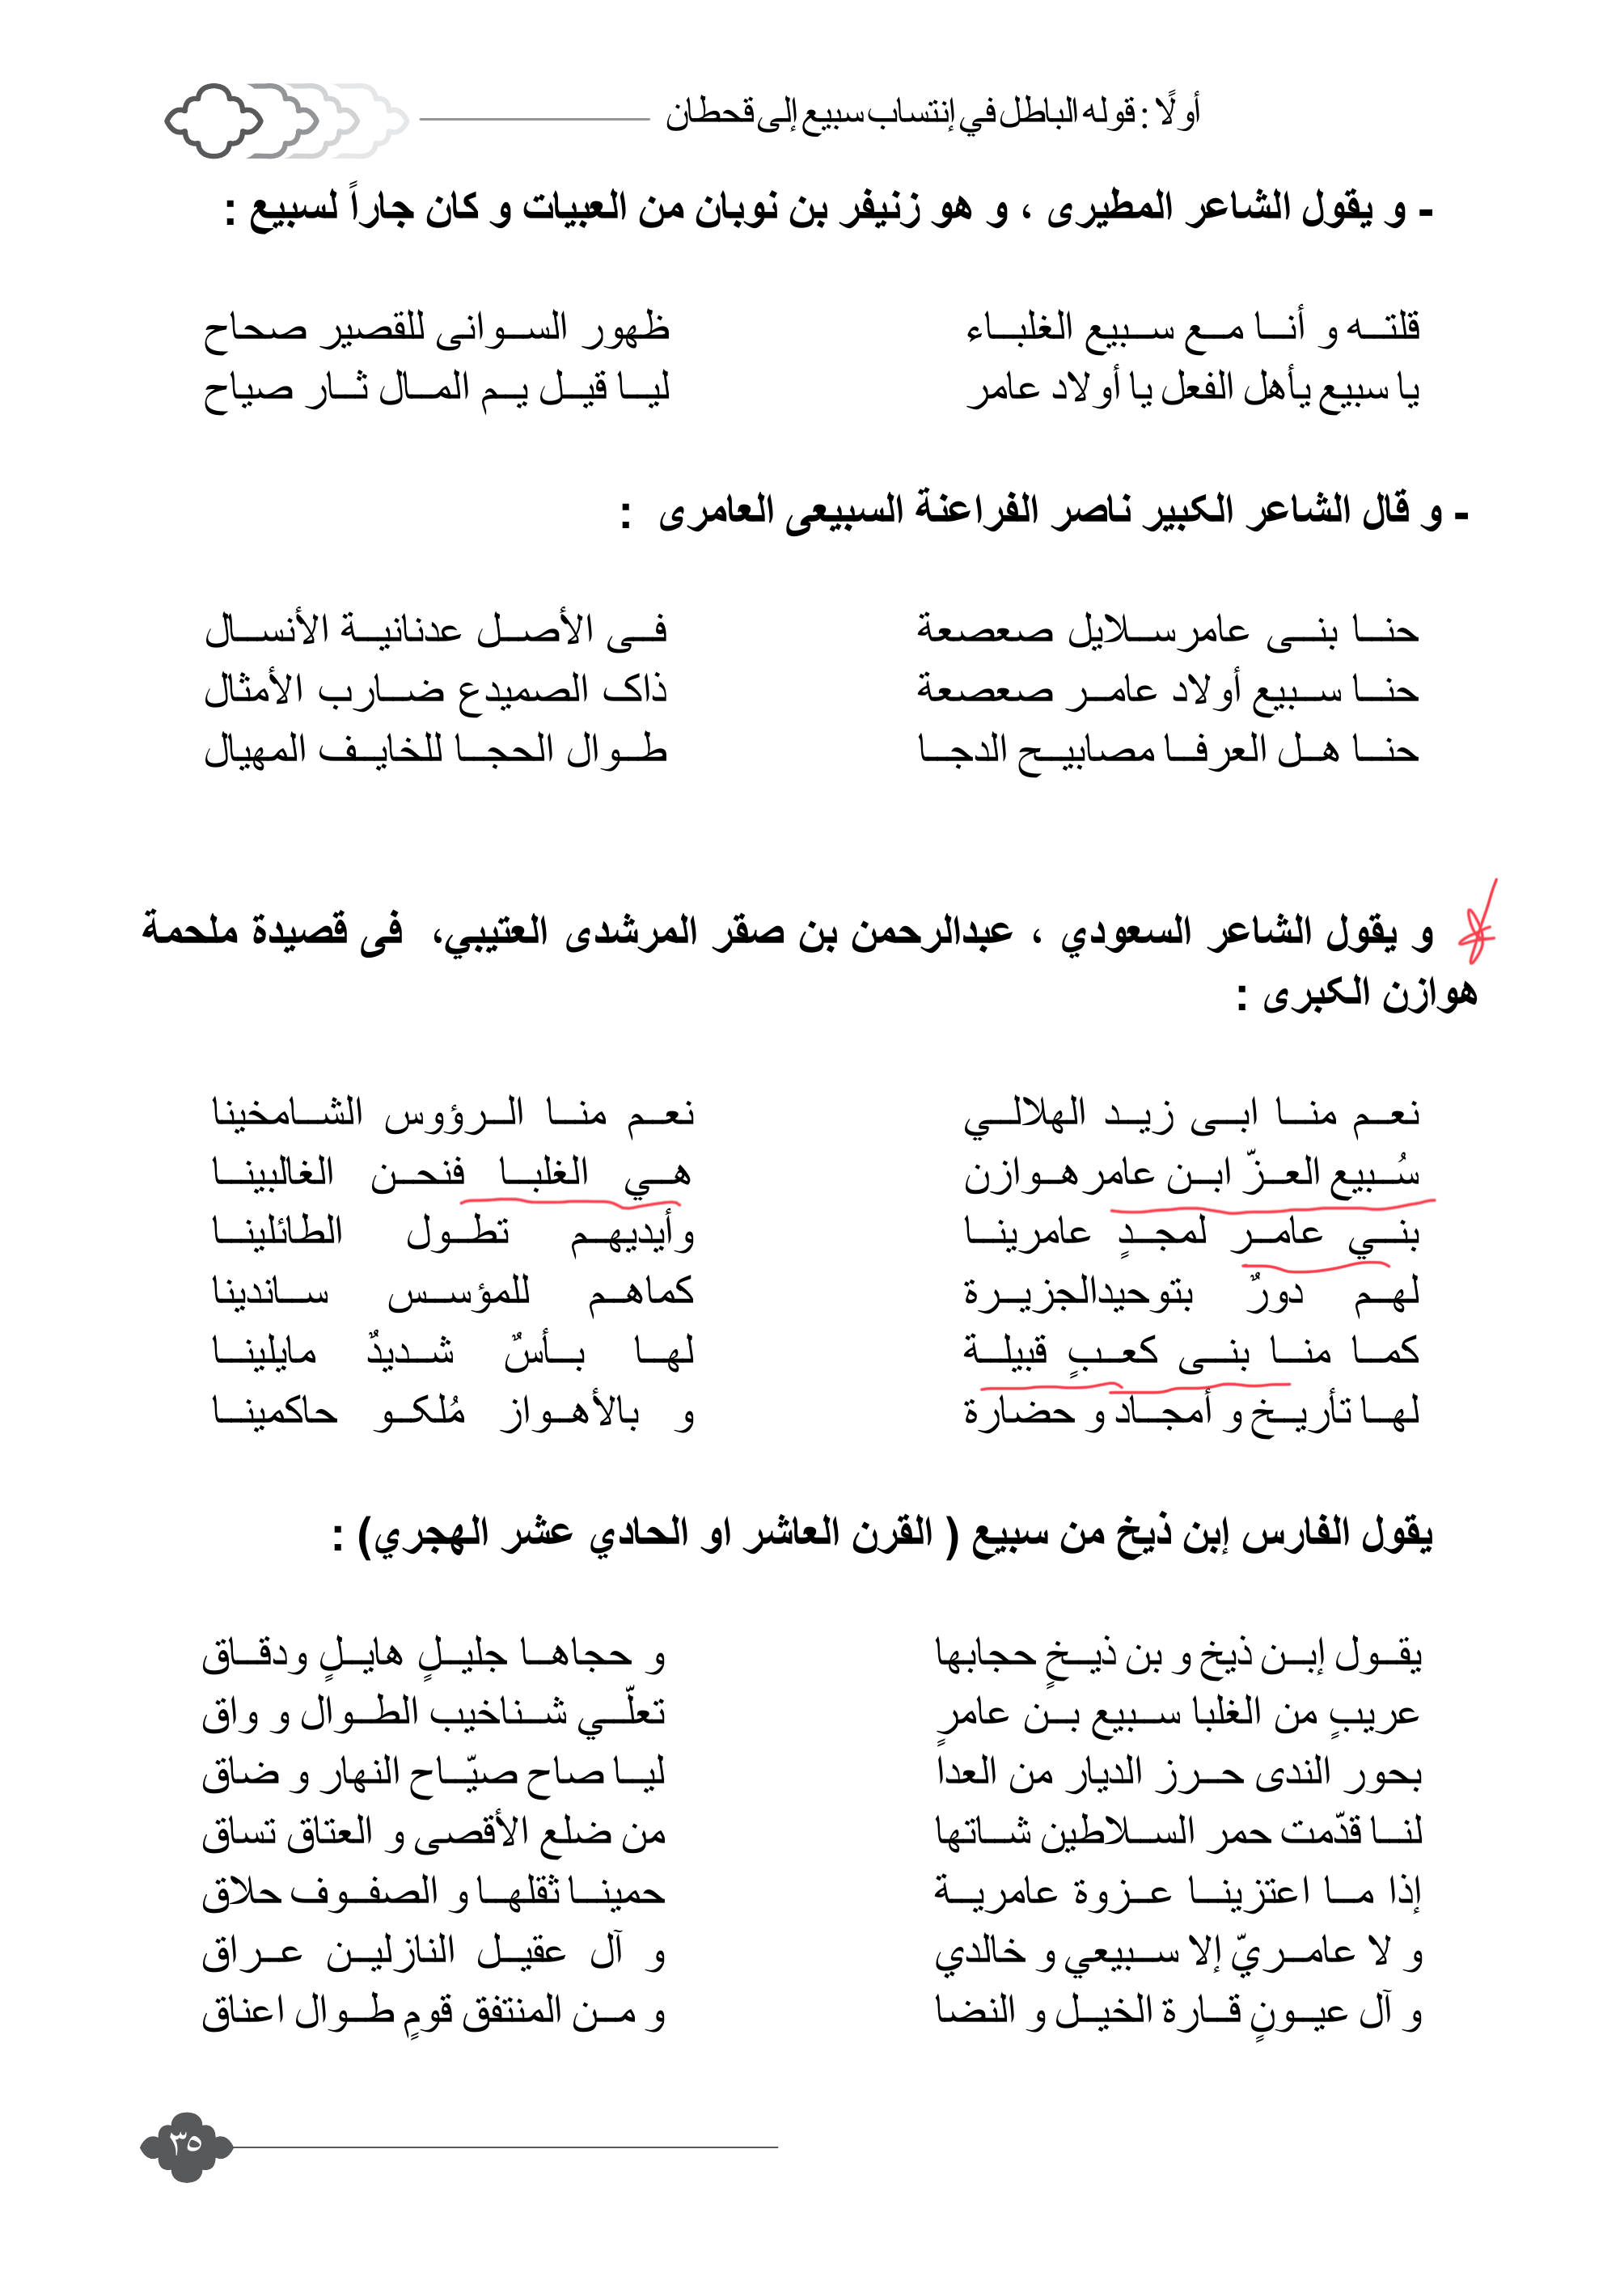 أولًا : قوله الباطل في إنتساب سبيع إلى قحطان
- و يقول الشاعر المطيرى ، و هو زنيفر بن نوبان من العبيات و كان جاراً لسبيع :
قلتـه و أنـا مـع سـبيع الغلبـاء ظهور السـوانى للقصير صحاح
يا سبيع يأهل الفعل يا أولاد عامر ليـا قيـل يـم المـال ثـار صياح
- و قال الشاعر الكبير ناصر الفراعنة السبيعى العامرى :
حنـا بنـى عامر سـلايل صعصعة فـى الأصـل عدنانيـة الأنسـال
حنـا سـبيع أولاد عامـر صعصعة ذاك الصميدع ضـارب الأمثال
حنـا هـل العرفـا مصابيـح الدجـا طـوال الحجـا للخايـف المهيال
و يقول الشاعر السعودي ، عبدالرحمن بن صقر المرشدى العتيبي، فى قصيدة ملحمة
هوازن الكبرى :
نعـم منـا ابـى زيـد الهلالـي نعـم منـا الـرؤوس الشـامخينا
سُـبيع العـزّ ابـن عامر هـوازن هـي الغلبـا فنحـن الغالبينـا
بنـي عامـر لمجـدٍ عامرينـا وأيديهـم تطـول الطائلينـا
لهـم دورٌ بتوحيدالجزيـرة كماهـم للمؤسـس سـاندينا
كمـا منـا بنـى كعـبٍ قبيلـة لهـا بـأسٌ شـديدٌ مايلينـا
لهـا تأريـخ و أمجـاد و حضارة و بالأهـواز مُلكـو حاكمينـا
يقول الفارس إبن ذيخ من سبيع ( القرن العاشر او الحادي عشر الهجري) :
يقـول إبـن ذيخ و بن ذيـخٍ حجابها و حجاهـا جليـلٍ هايـلٍ ودقـاق
عريبٍ من الغلبا سـبيع بـن عامرٍ تعلّـي شـناخيب الطـوال و واق
بحور الندى حـرز الديار من العدا ليـا صاح صيّـاح النهار و ضاق
لنـا قدّمت حمر السـلاطين شـاتها من ضلع الأقصى و العتاق تساق
إذا مـا اعتزينـا عـزوة عامريـة حمينـا ثقلهـا و الصفـوف حلاق
و لا عامـريّ إلا سـبيعي و خالدي و آل عقيـل النازليـن عـراق
و آل عيـونٍ قـارة الخيـل و النضا و مـن المنتفق قومٍ طـوال اعناق
٣٥